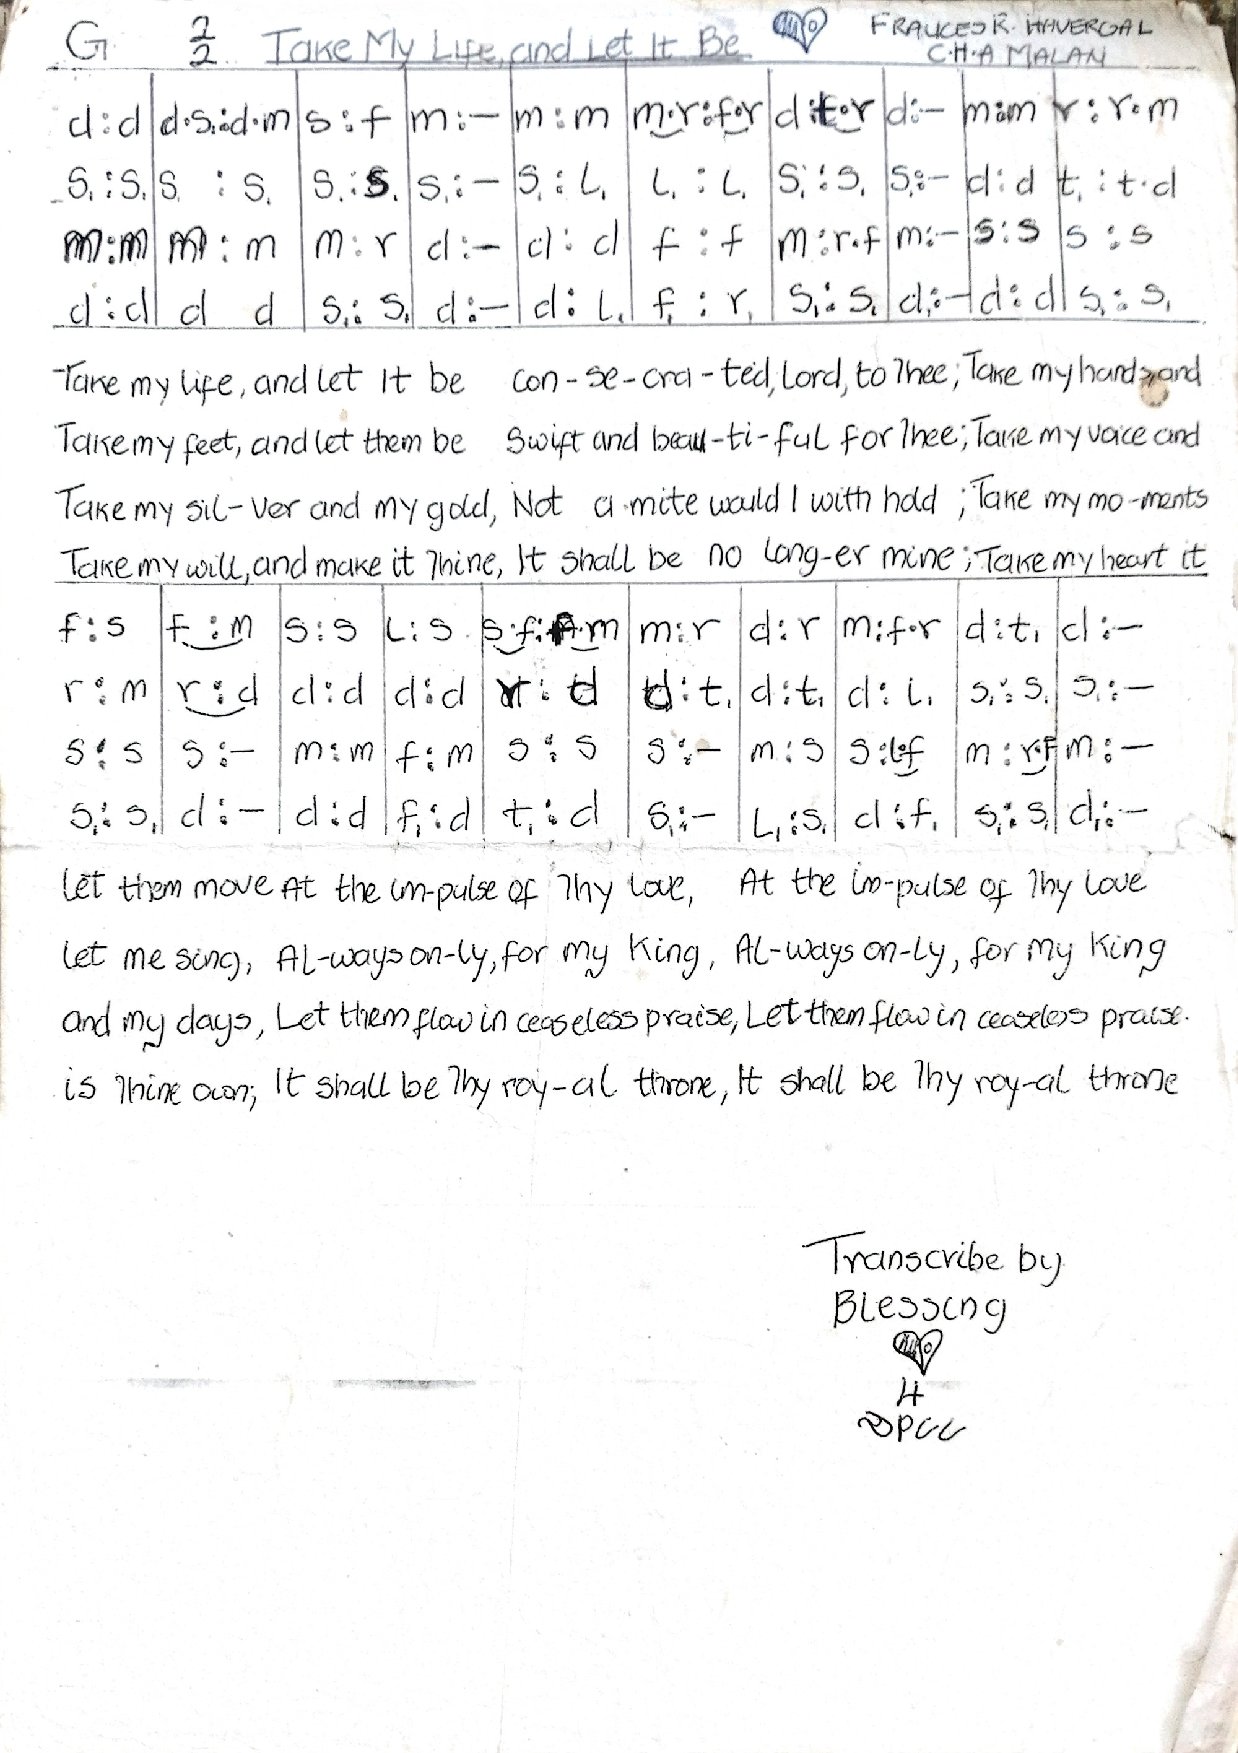 G 2/2 Take My Life, and Let It Be FRANCES R. HAVERGAL
C.H.A MALAN
d:d | d.s₁:d.m | s:f | m:– | m:m | m.r:f.r | d:f.r | d:– | m:m | r:r.m
s₁:s₁ | s₁:s₁ | s₁:s₁ | s₁:– | s₁:L₁ | L₁:L₁ | s₁:s₁ | s₁:– | d:d | t₁:t.d
m:m | m:m | m:r | d:– | d:d | f:f | m:r.f | m:– | s:s | s:s
d:d | d d | s₁:s₁ | d:– | d:L₁ | f₁:r₁ | s₁:s₁ | d₁:– | d:d | s₁:s₁
Take my life, and let it be con-se-cra-ted, Lord, to Thee; Take my hands and
Take my feet, and let them be Swift and beau-ti-ful for Thee; Take my voice and
Take my sil-ver and my gold, Not a mite would I with hold; Take my mo-ments
Take my will, and make it Thine, It shall be no long-er mine; Take my heart it
f:s | f:m | s:s | L:s | s.f:f.m | m:r | d:r | m:f.r | d:t₁ | d:–
r:m | r:d | d:d | d:d | r:d | d:t₁ | d:t₁ | d:L₁ | s₁:s₁ | s₁:–
s:s | s:– | m:m | f:m | s:s | s:– | m:s | s:l.f | m:r.f | m:–
s₁:s₁ | d:– | d:d | f₁:d | t₁:d | s₁:– | L₁:s₁ | d:f₁ | s₁:s₁ | d₁:–
Let them move At the im-pulse of Thy love, At the im-pulse of Thy love
Let me sing, Al-ways on-ly, for my King, Al-ways on-ly, for my King
and my days, Let them flow in ceaseless praise, Let them flow in ceaseless praise.
is Thine own; It shall be Thy roy-al throne, It shall be Thy roy-al throne
Transcribe by
Blessing